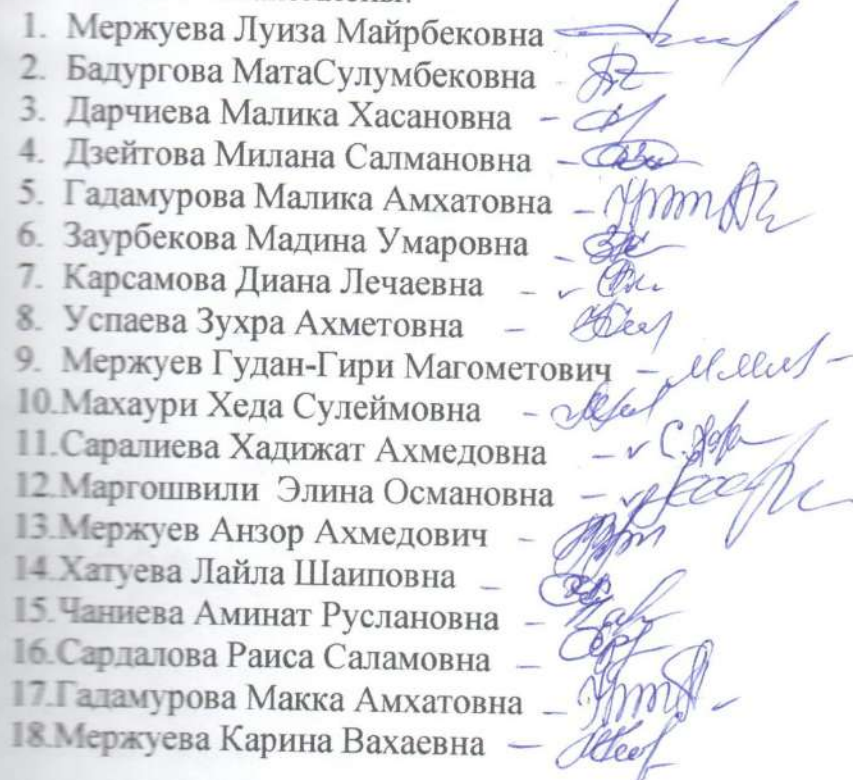 1. Мержуева Луиза Майрбековна
2. Бадургова МатаСулумбековна -
3. Дарчиева Малика Хасановна -
4. Дзейтова Милана Салмановна -
5. Гадамурова Малика Амхатовна -
6. Заурбекова Мадина Умаровна -
7. Карсамова Диана Лечаевна -
8. Успаева Зухра Ахметовна -
9. Мержуев Гудан-Гири Магометович -
10.Махаури Хеда Сулеймовна -
11.Саралиева Хадижат Ахмедовна -
12.Маргошвили Элина Османовна -
13.Мержуев Анзор Ахмедович -
14.Хатуева Лайла Шаиповна -
15.Чаниева Аминат Руслановна -
16.Сардалова Раиса Саламовна -
17.Гадамурова Макка Амхатовна -
18.Мержуева Карина Вахаевна -